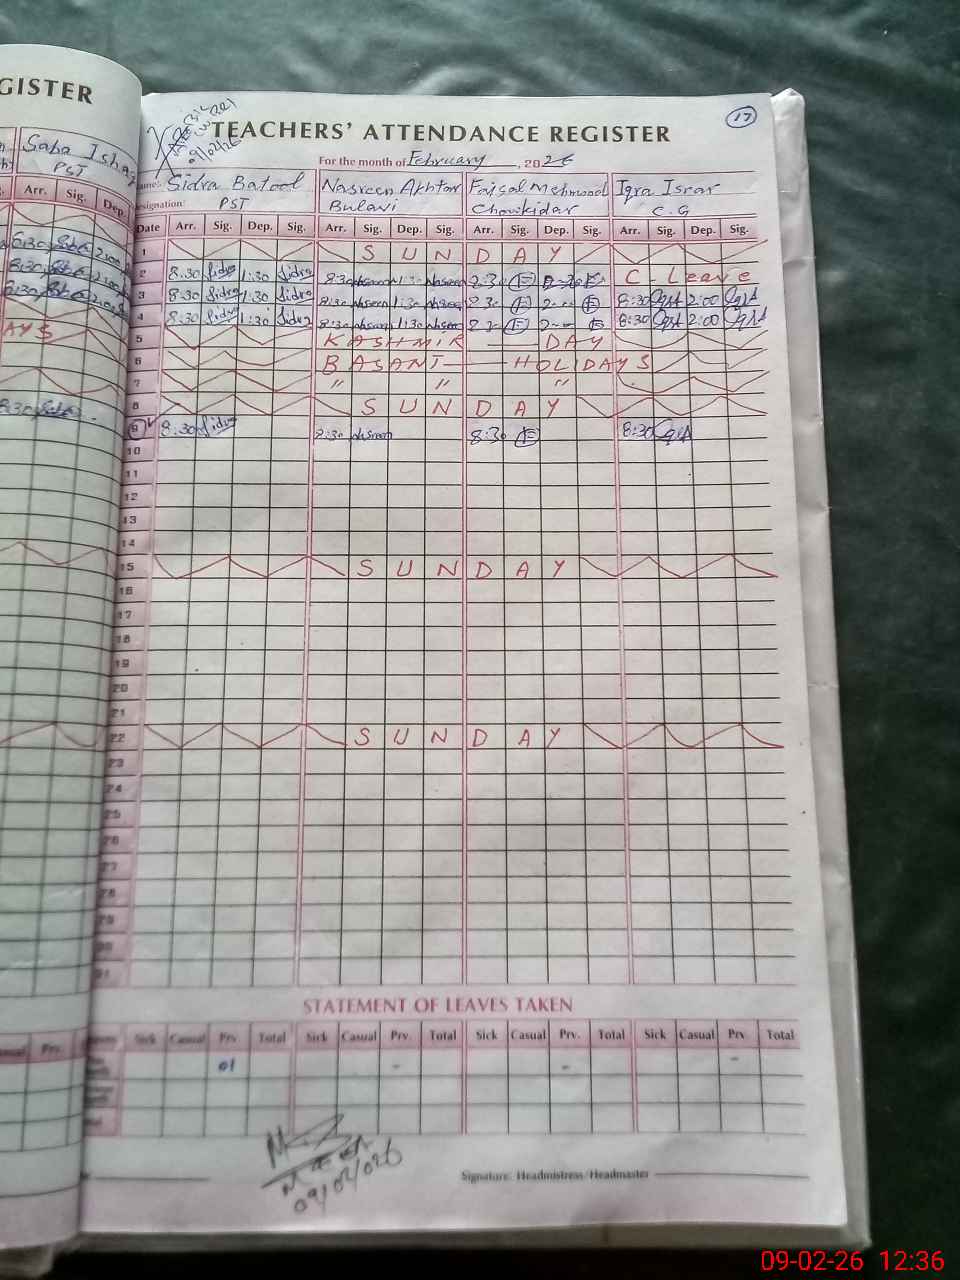 GISTER
Saba Ishaq
PST
Arr. Sig. Dep.
17
TEACHERS' ATTENDANCE REGISTER
For the month of February, 2026
Name: Sidra Batool Nasreen Akhtar Faisal Mehmood Iqra Israr
Designation: PST Bulavi Chowkidar C.G
Date Arr. Sig. Dep. Sig. Arr. Sig. Dep. Sig. Arr. Sig. Dep. Sig. Arr. Sig. Dep. Sig.
1 SUNDAY
2 8:30 Sidra 1:30 Sidra 8:30 Nasreen 1:30 Nasreen C-Leave
3 8:30 Sidra 1:30 Sidra 8:30 Nasreen 1:30 Nasreen 8:30 Iqra 2:00 Iqra
4 8:30 Sidra 1:30 Sidra 8:30 Nasreen 1:30 Nasreen 8:30 Iqra 2:00 Iqra
5 KASHMIR DAY
6 BASANT HOLIDAYS
7 " " "
8 SUNDAY
9 8:30 Sidra 8:30 Nasreen 8:30 8:30 Iqra
10
11
12
13
14
15 SUNDAY
16
17
18
19
20
21
22 SUNDAY
23
24
25
26
27
28
29
30
31
STATEMENT OF LEAVES TAKEN
Sick Casual Prv. Total Sick Casual Prv. Total Sick Casual Prv. Total Sick Casual Prv. Total
01 - - -
09/02/026
Signature: Headmistress/Headmaster
09-02-26 12:36